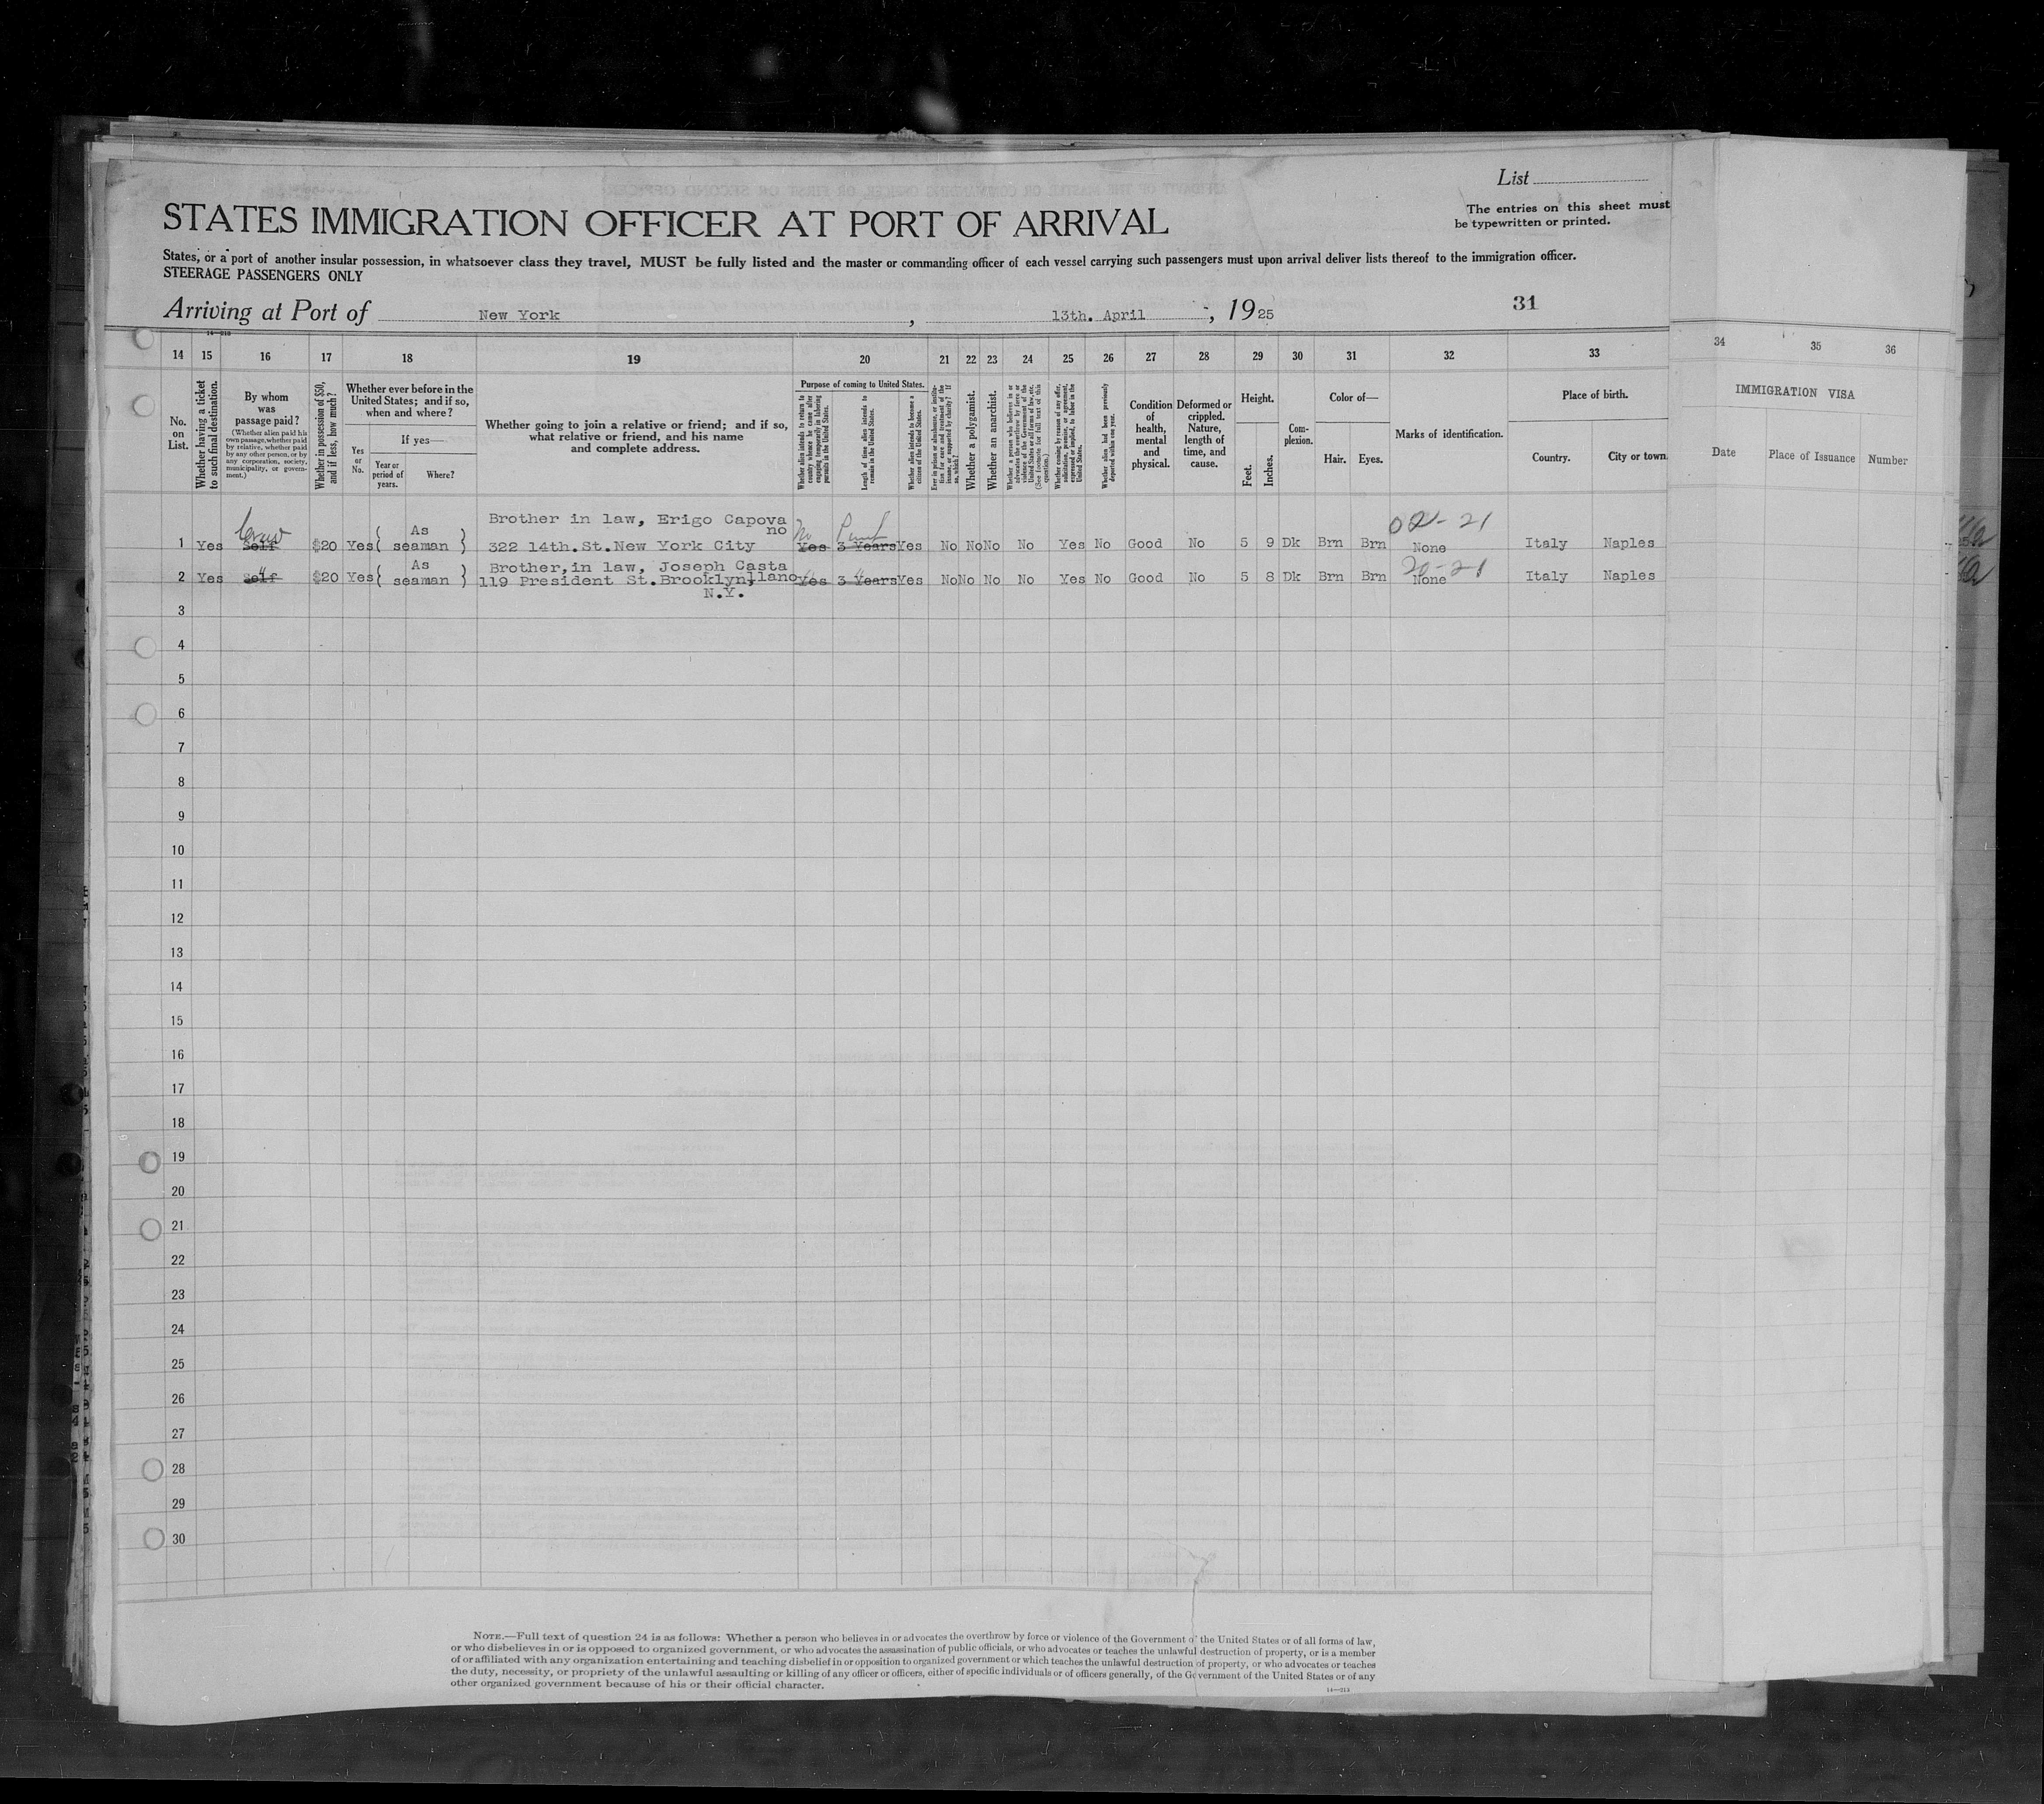 List
The entries on this sheet must
be typewritten or printed.
STATES IMMIGRATION OFFICER AT PORT OF ARRIVAL
States, or a port of another insular possession, in whatsoever class they travel, MUST be fully listed and the master or commanding officer of each vessel carrying such passengers must upon arrival deliver lists thereof to the immigration officer.
STEERAGE PASSENGERS ONLY
Arriving at Port of New York, 13th. April, 1925
31
14 15 16 17 18 19 20 21 22 23 24 25 26 27 28 29 30 31 32 33 34 35 36
No. on List.
Whether having a ticket to such final destination.
By whom was passage paid?
(Whether alien paid his own passage, whether paid by relative, whether paid by any other person, or by any corporation, society, municipality, or government.)
Whether in possession of $50, and if less, how much?
Whether ever before in the United States; and if so, when and where?
Yes or No.
If yes—
Year or period of years.
Where?
Whether going to join a relative or friend; and if so, what relative or friend, and his name and complete address.
Purpose of coming to United States.
Whether alien intends to return to country whence he came after engaging temporarily in laboring pursuits in the United States.
Length of time alien intends to remain in the United States.
Whether alien intends to become a citizen of the United States.
Ever in prison or almshouse, or institution for care and treatment of the insane, or supported by charity? If so, which?
Whether a polygamist.
Whether an anarchist.
Whether a person who believes in or advocates the overthrow by force or violence of the Government of the United States or all forms of law, etc. (See footnote for full text of this question.)
Whether coming by reason of any offer, solicitation, promise, or agreement, expressed or implied, to labor in the United States.
Whether alien had been previously deported within one year.
Condition of health, mental and physical.
Deformed or crippled. Nature, length of time, and cause.
Height.
Feet. Inches.
Complexion.
Color of—
Hair. Eyes.
Marks of identification.
Place of birth.
Country. City or town
IMMIGRATION VISA
Date Place of Issuance Number
Brother in law, Erigo Capova
no
1 Yes Self $20 Yes { As seaman } 322 14th.St.New York City No Yes 3 Years Yes No No No No Yes No Good No 5 9 Dk Brn Brn None Italy Naples
Brother,in law, Joseph Casta
2 Yes Self $20 Yes { As seaman } 119 President St.Brooklyn,llano Yes 3 Years Yes No No No No Yes No Good No 5 8 Dk Brn Brn 20-21 None Italy Naples
N.Y.
3
4
5
6
7
8
9
10
11
12
13
14
15
16
17
18
19
20
21
22
23
24
25
26
27
28
29
30
NOTE.—Full text of question 24 is as follows: Whether a person who believes in or advocates the overthrow by force or violence of the Government of the United States or of all forms of law,
or who disbelieves in or is opposed to organized government, or who advocates the assassination of public officials, or who advocates or teaches the unlawful destruction of property, or is a member
of or affiliated with any organization entertaining and teaching disbelief in or opposition to organized government or which teaches the unlawful destruction of property, or who advocates or teaches
the duty, necessity, or propriety of the unlawful assaulting or killing of any officer or officers, either of specific individuals or of officers generally, of the Government of the United States or of any
other organized government because of his or their official character.
14—213